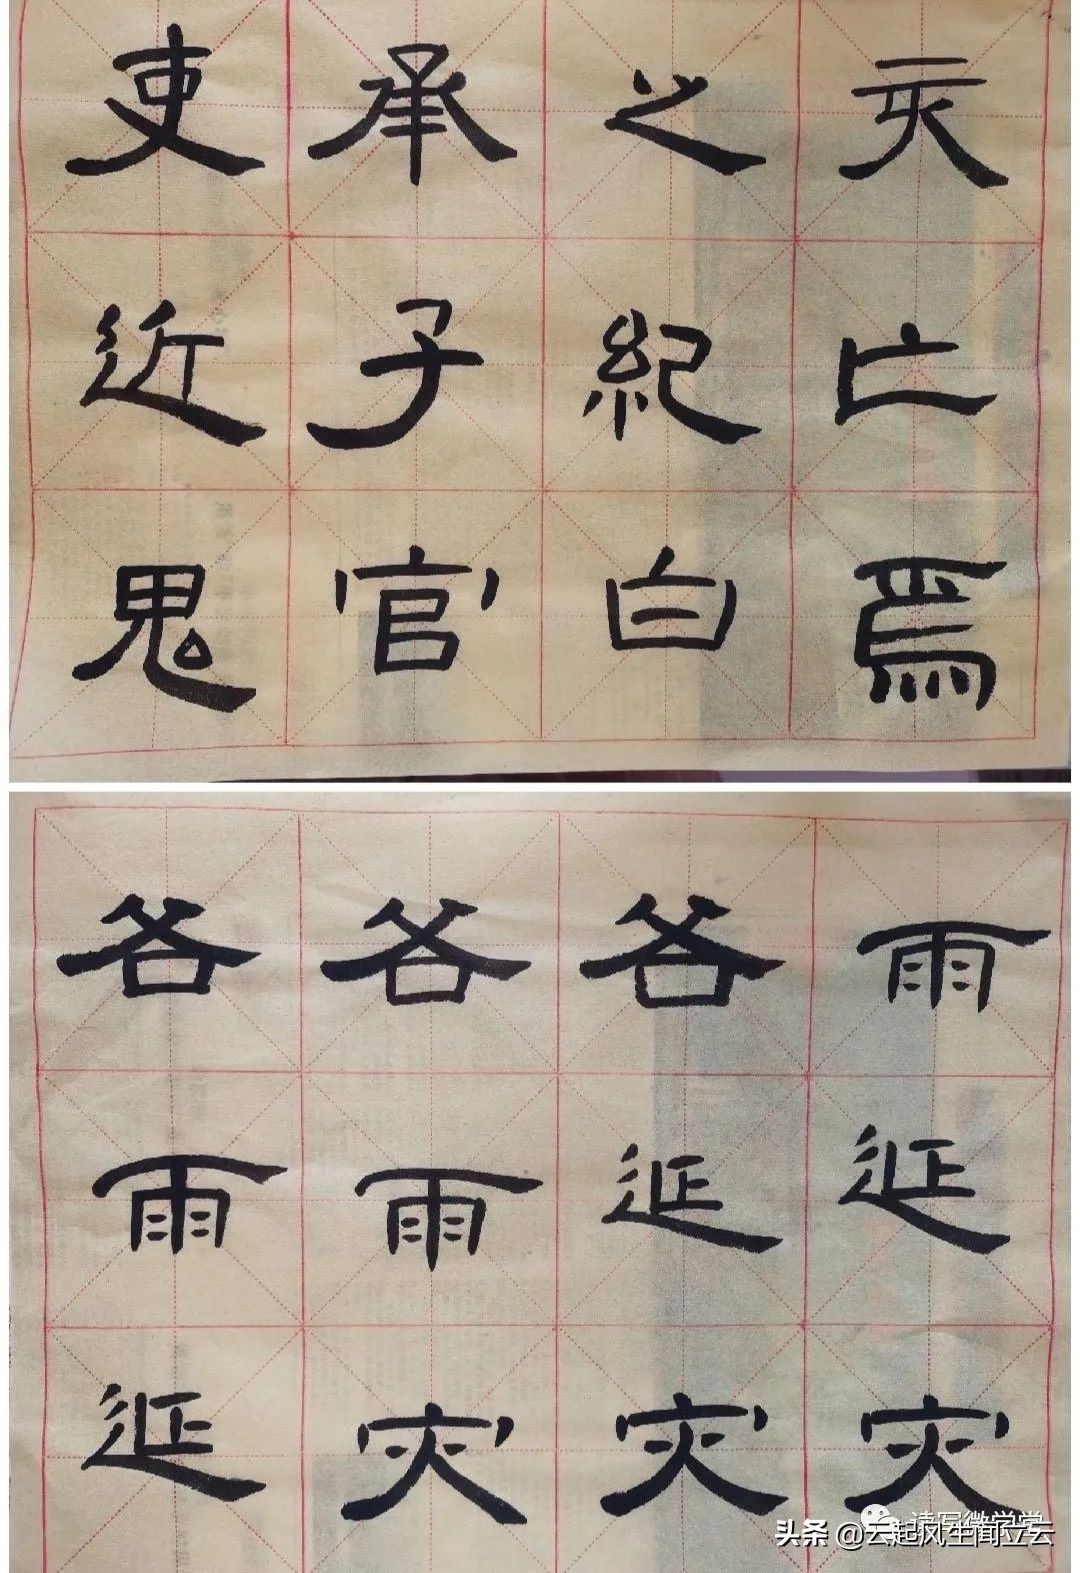 吏承之亥
近子紀亡
鬼官白焉
各各各雨
雨雨延延
延灾灾灾
读写微学堂
头条 @云起风生闻立云